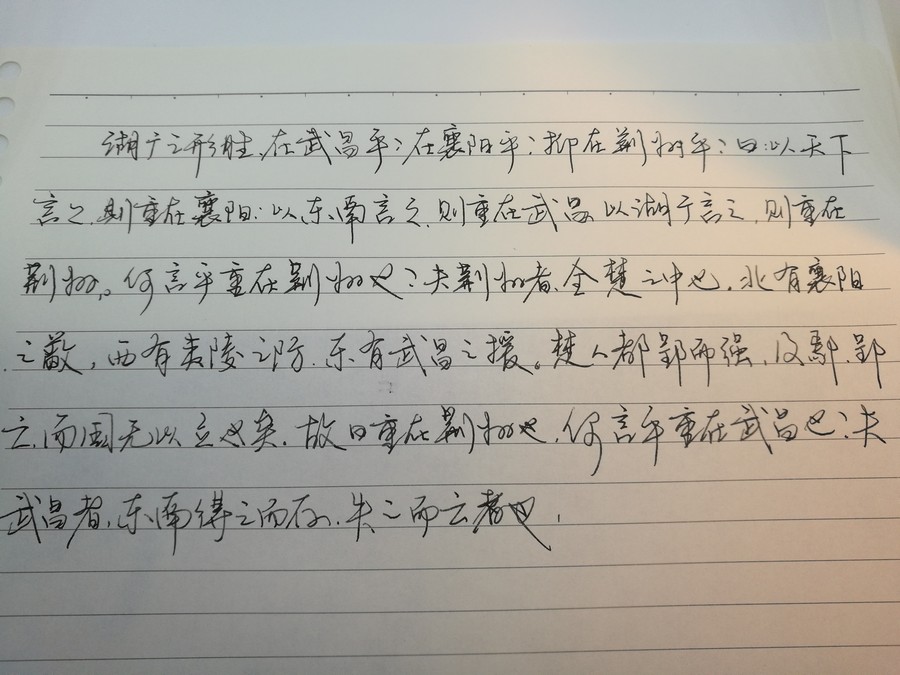 湖广之形胜,在武昌乎?在襄阳乎?抑在荆州乎?曰:以天下
言之,则重在襄阳;以东南言之,则重在武昌,以湖广言之,则重在
荆州。何言乎重在荆州也?夫荆州者,全楚之中也,北有襄阳
之蔽,西有夷陵之防,东有武昌之援。楚人都郢而强,及鄢、郢
亡,而国无以立也矣。故曰重在荆州也,何言乎重在武昌也?夫
武昌者,东南得之而存,失之而亡者也,